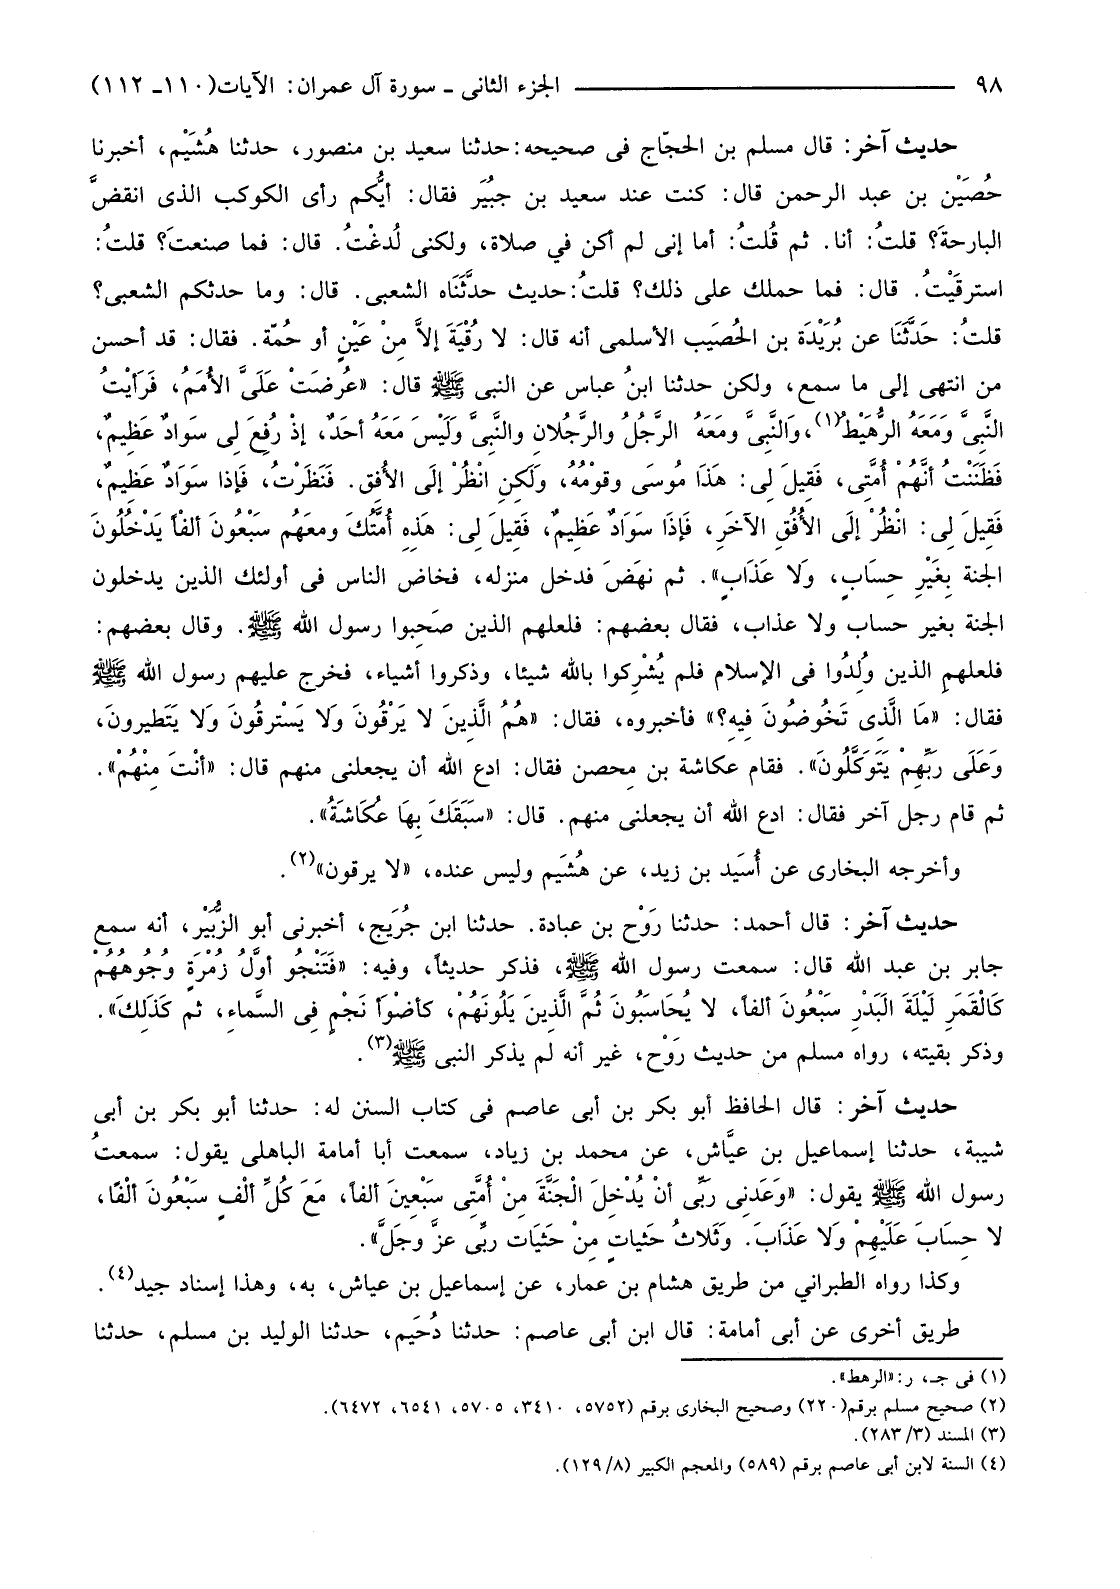 ٩٨ ــــــــــــــــــــــــــــــــــــــ الجزء الثانى ـ سورة آل عمران: الآيات(١١٠ـ ١١٢)
حديث آخر: قال مسلم بن الحجّاج فى صحيحه:حدثنا سعيد بن منصور، حدثنا هُشَيْم، أخبرنا
حُصَيْن بن عبد الرحمن قال: كنت عند سعيد بن جبيَر فقال: أيُّكم رأى الكوكب الذى انقضَّ
البارحةَ؟ قلتُ: أنا. ثم قُلتُ: أما إنى لم أكن في صلاة، ولكنى لُدغْتُ. قال: فما صنعتَ؟ قلتُ:
استرقَيْتُ. قال: فما حملك على ذلك؟ قلتُ:حديث حدَّثَنَاه الشعبى. قال: وما حدثكم الشعبى؟
قلتُ: حَدَّثَنَا عن بُرَيْدَة بن الحُصَيب الأسلمى أنه قال: لا رُقْيَةَ إلاَّ مِنْ عَيْنٍ أو حُمّة. فقال: قد أحسن
من انتهى إلى ما سمع، ولكن حدثنا ابنُ عباس عن النبى ﷺ قال: «عُرضَتْ عَلَىَّ الأُمَمُ، فَرَأيْتُ
النَّبِىَّ وَمَعَهُ الرُّهَيْطُ(١)، وَالنَّبِىَّ ومَعَهُ الرَّجُلُ والرَّجُلانِ والنَّبِىَّ وَلَيْسَ مَعَهُ أحَدٌ، إذْ رُفِعَ لِى سَوادٌ عَظِيمٌ،
فَظَنَنْتُ أنَّهُمْ أُمَّتِى، فَقِيلَ لِى: هَذَا مُوسَى وقَوْمُهُ، ولَكِنِ انْظُرْ إلَى الأُفِق. فَنَظَرْتُ، فَإذا سَوَادٌ عَظِيمٌ،
فَقِيلَ لِى: انْظُرْ إلَى الأُفُقِ الآخَرِ، فَإذَا سَوَادٌ عَظِيمٌ، فَقِيلَ لِى: هَذِهِ أُمَّتُكَ ومعَهُم سَبْعُونَ ألفاً يَدْخُلُونَ
الجنة بِغَيْرِ حِسَابٍ، وَلا عَذَابٍ». ثم نهَضَ فدخل منزله، فخاض الناس فى أولئك الذين يدخلون
الجنة بغير حساب ولا عذاب، فقال بعضهم: فلعلهم الذين صَحِبوا رسول الله ﷺ. وقال بعضهم:
فلعلهم الذين وُلِدُوا فى الإسلام فلم يُشْرِكوا بالله شيئا، وذكروا أشياء، فخرج عليهم رسول الله ﷺ
فقال: «مَا الَّذِى تَخُوضُونَ فِيهِ؟» فأخبروه، فقال: «هُمُ الَّذِينَ لا يَرْقُونَ وَلا يَسْترقُونَ وَلا يَتَطيرونَ،
وَعَلَى رَبِّهِمْ يَتَوَكَّلُونَ». فقام عكاشة بن محصن فقال: ادع الله أن يجعلنى منهم قال: «أنْتَ مِنْهُمْ».
ثم قام رجل آخر فقال: ادع الله أن يجعلنى منهم. قال: «سَبَقَكَ بِهَا عُكَاشَةُ».
وأخرجه البخارى عن أُسَيَد بن زيد، عن هُشَيم وليس عنده، «لا يرقون»(٢).
حديث آخر: قال أحمد: حدثنا رَوْح بن عبادة. حدثنا ابن جُرَيَج، أخبرنى أبو الزُّبَيْر، أنه سمع
جابر بن عبد الله قال: سمعت رسول الله ﷺ، فذكر حديثاً، وفيه: «فَتَنْجُو أوَّلُ زُمْرَةٍ وُجُوهُهُمْ
كَالْقَمَرِ لَيْلَةَ البَدْرِ سَبْعُونَ ألفاً، لا يُحَاسَبُونَ ثُمَّ الَّذِينَ يَلُونَهُمْ، كأضْوَأ نَجْمٍ فِى السَّماءِ، ثم كَذَلِكَ».
وذكر بقيته، رواه مسلم من حديث رَوْح، غير أنه لم يذكر النبى ﷺ(٣).
حديث آخر: قال الحافظ أبو بكر بن أبى عاصم فى كتاب السنن له: حدثنا أبو بكر بن أبى
شيبة، حدثنا إسماعيل بن عيَّاش، عن محمد بن زياد، سمعت أبا أمامة الباهلى يقول: سمعتُ
رسول الله ﷺ يقول: «وَعَدَنِى رَبِّى أنْ يُدْخِلَ الْجَنَّةَ مِنْ أُمَّتِى سَبْعِينَ ألفاً، مَعَ كُلِّ ألْفٍ سَبْعُونَ ألْفًا،
لا حِسَابَ عَلَيْهِمْ وَلا عَذَابَ. وَثَلاثُ حَثياتٍ مِنْ حَثَيَات ربِّى عزَّ وجَلَّ».
وكذا رواه الطبراني من طريق هشام بن عمار، عن إسماعيل بن عياش، به، وهذا إسناد جيد(٤).
طريق أخرى عن أبى أمامة: قال ابن أبى عاصم: حدثنا دُحَيم، حدثنا الوليد بن مسلم، حدثنا
(١) فى جـ، ر:«الرهط».
(٢) صحيح مسلم برقم(٢٢٠) وصحيح البخارى برقم (٥٧٥٢، ٣٤١٠، ٥٧٠٥، ٦٥٤١، ٦٤٧٢).
(٣) المسند (٣/ ٢٨٣).
(٤) السنة لابن أبى عاصم برقم (٥٨٩) والمعجم الكبير (٨/ ١٢٩).